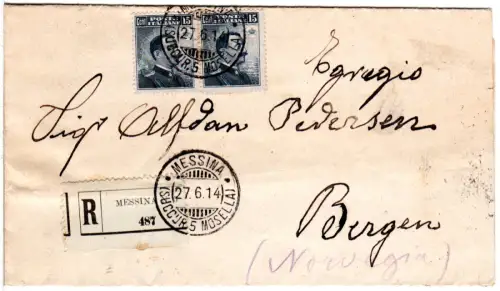 15 POSTE ITALIANE 15
MESSINA
27.6.14
(SUCC.R.5 MOSELLA)
Egregio
Sigr Alfdan Pedersen
MESSINA
27.6.14
(SUCC.R.5 MOSELLA)
R
MESSINA
487
Bergen
(Norvegia)